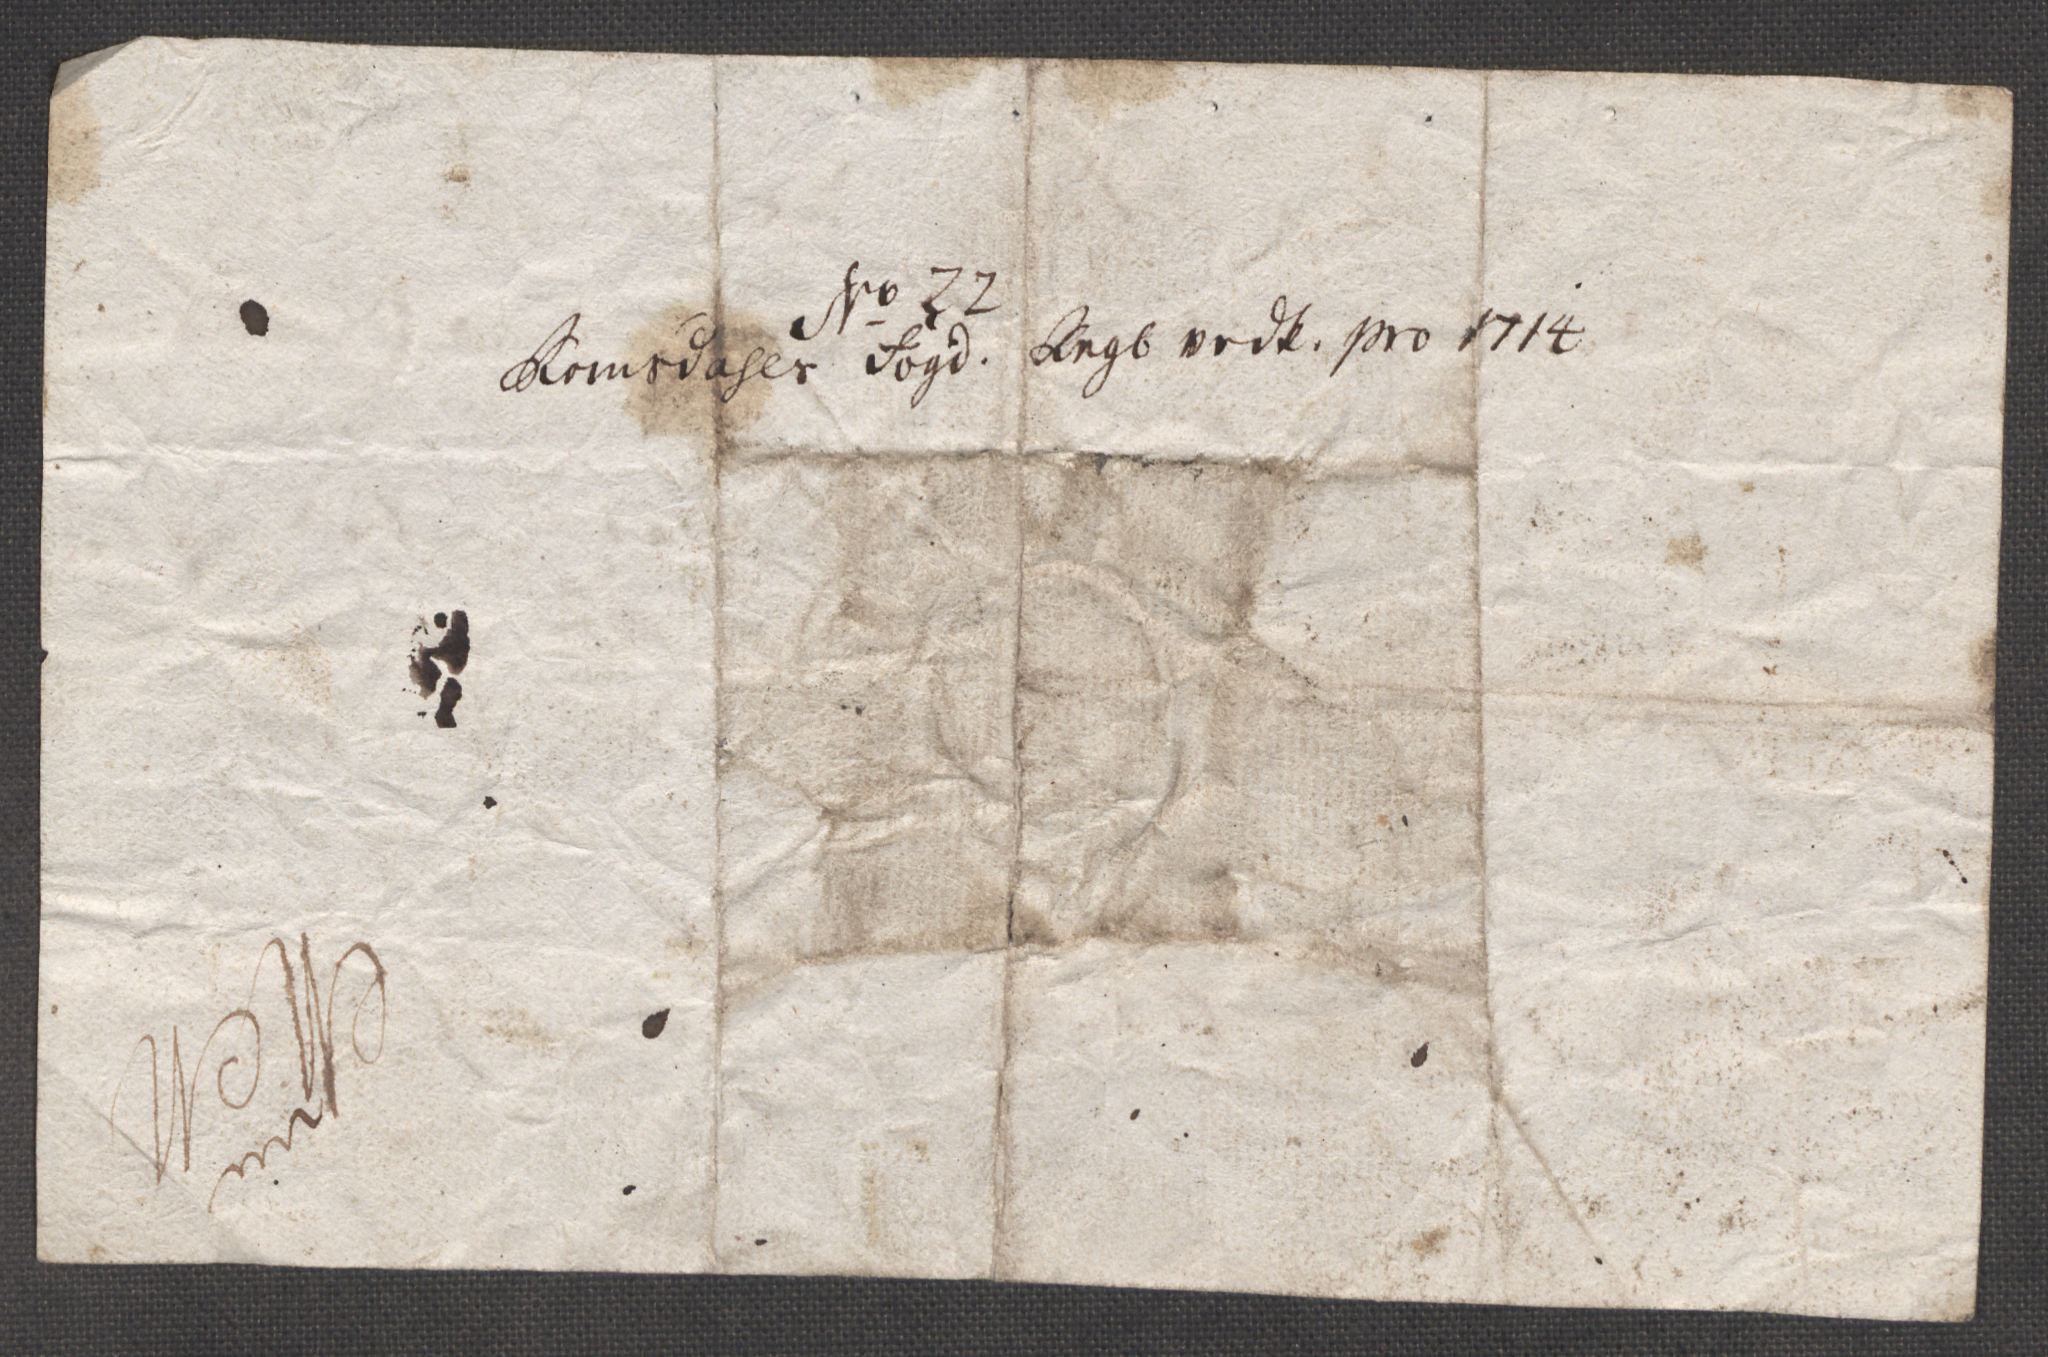 No 22
Romsdahls Fogd. Regb vedk. pro 1714